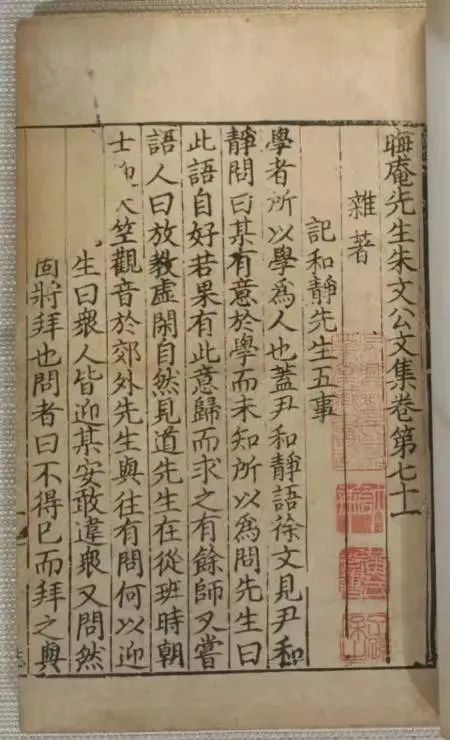 晦庵先生朱文公文集卷第七十一
雜著
記和靜先生五事
學者所以學爲人也蓋尹和靜語徐文見尹和
靜問曰某有意於學而未知所以爲問先生曰
此語自好若果有此意歸而求之有餘師又嘗
語人曰放教虚閑自然見道先生在從班時朝
士天竺觀音於郊外先生與往有問何以迎
生曰衆人皆迎某安敢違衆又問然
固將拜也問者曰不得已而拜之與